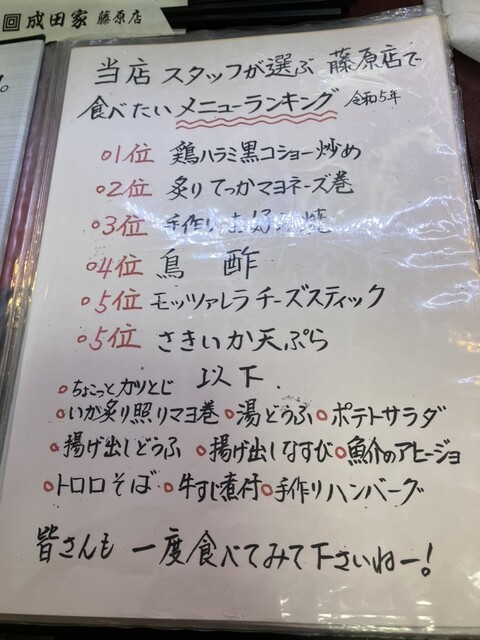 成田家 藤原店
当店 スタッフが選ぶ 藤原店で
食べたい メニューランキング 令和5年
1位 鶏ハラミ黒コショー炒め
2位 炙りてっかマヨネーズ巻
3位 手作りお好み焼
4位 鳥 酢
5位 モッツァレラチーズスティック
5位 さきいか天ぷら
以下
ちょこっとカツとじ
いか炙り照りマヨ巻 湯どうふ ポテトサラダ
揚げ出しどうふ 揚げ出しなすび 魚介のアヒージョ
トロロそば 牛すじ煮付 手作りハンバーグ
皆さんも 一度食べてみて下さいねー!